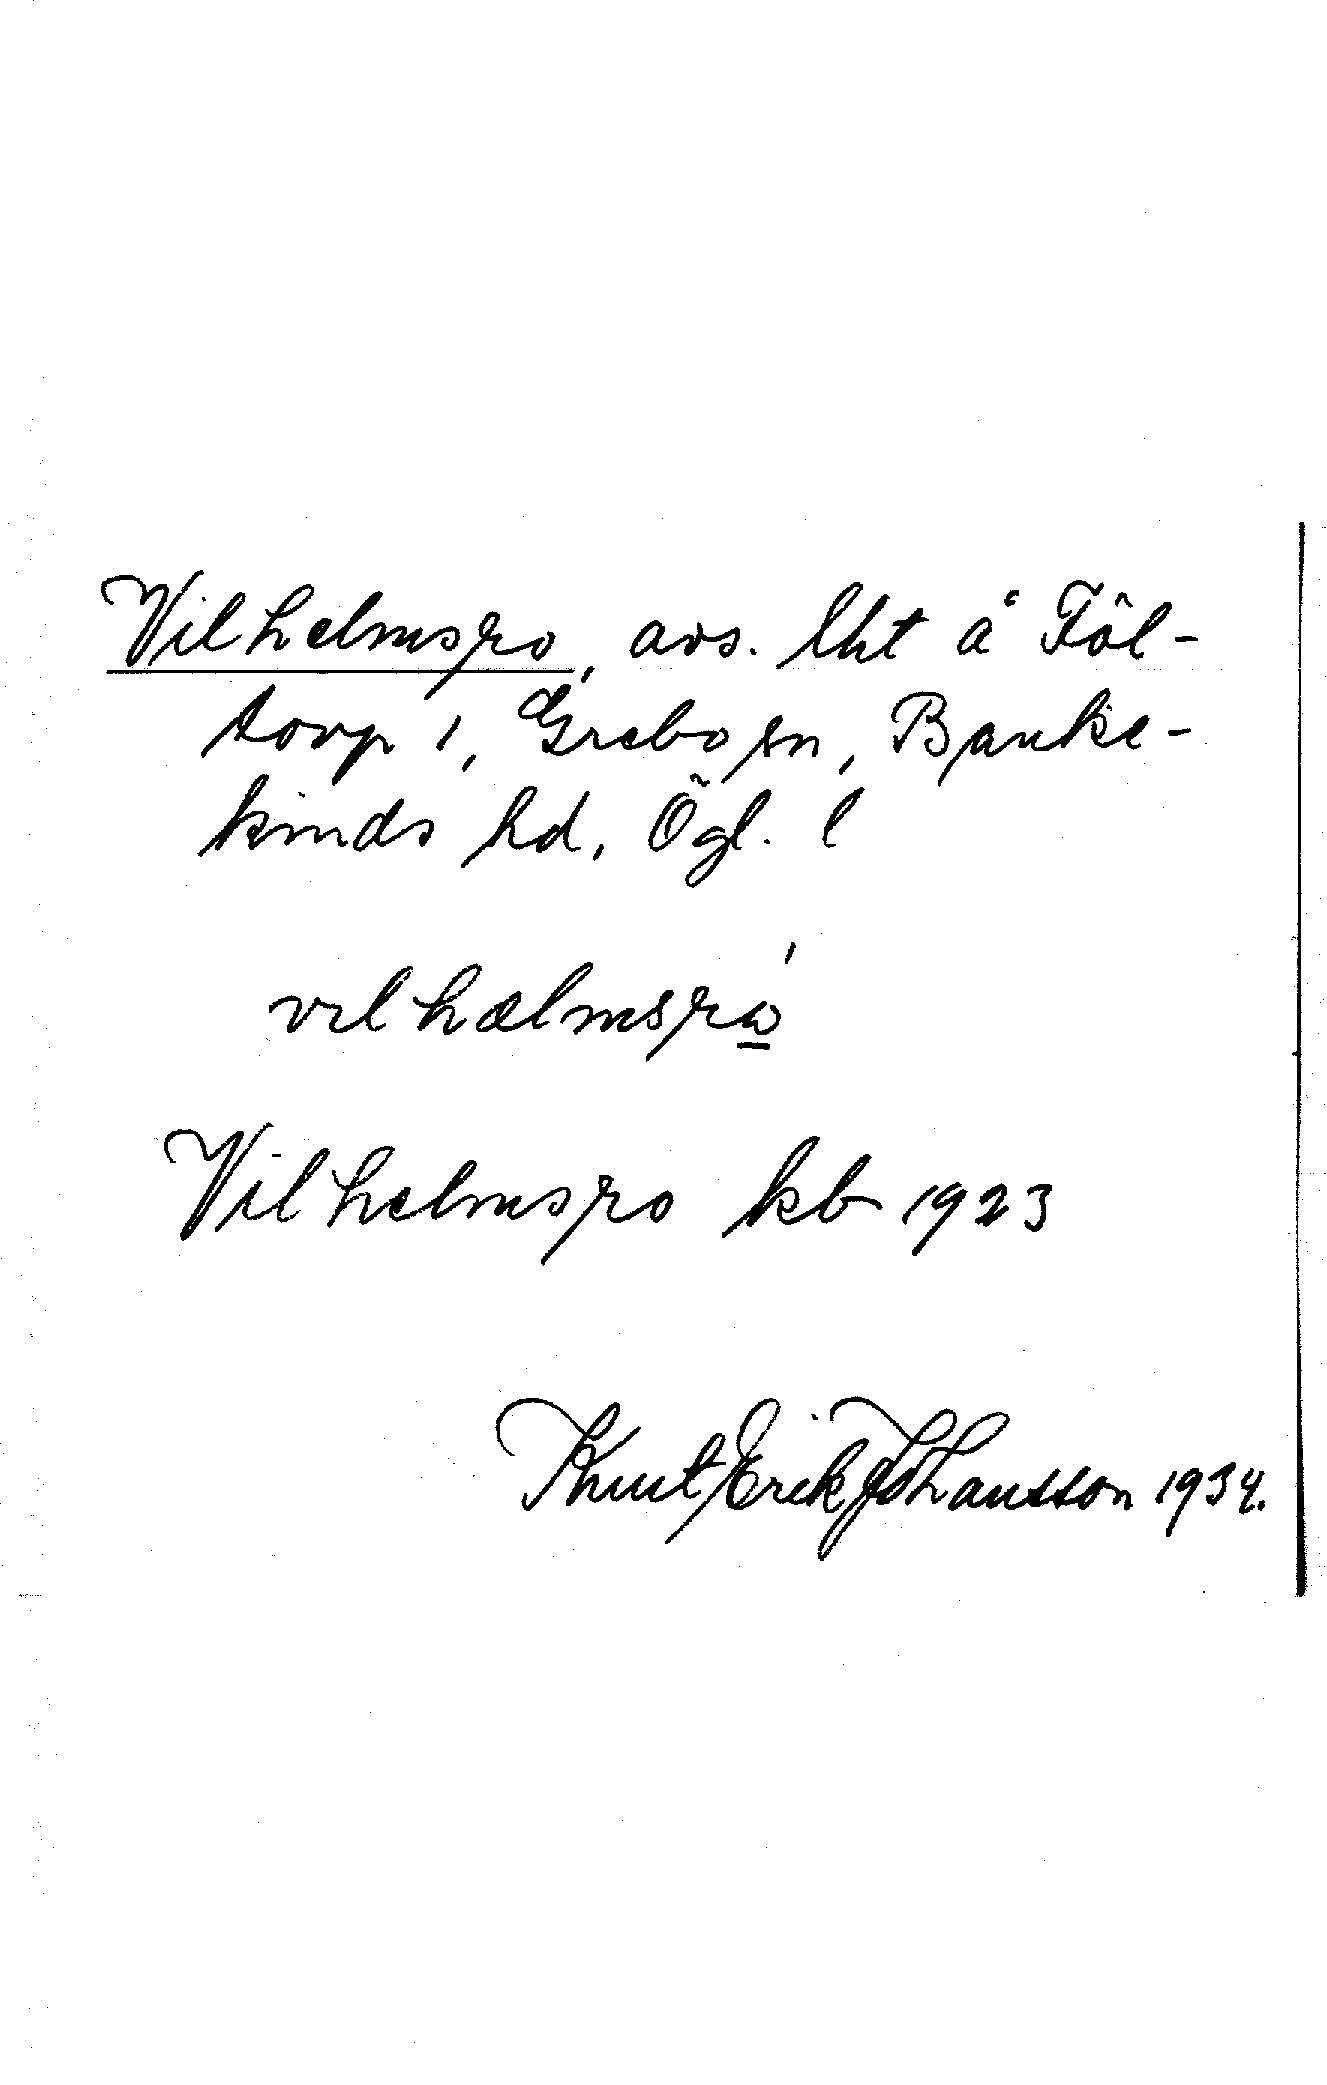 Vilhelmsro, avs. lht å Föl-
torp 1, Grebo sn, Banke-
kinds hd, Ögl. l
vɪlhælmsrώ̲
Vilhelmsro kb 1923
Knut Erik Johansson 1934.